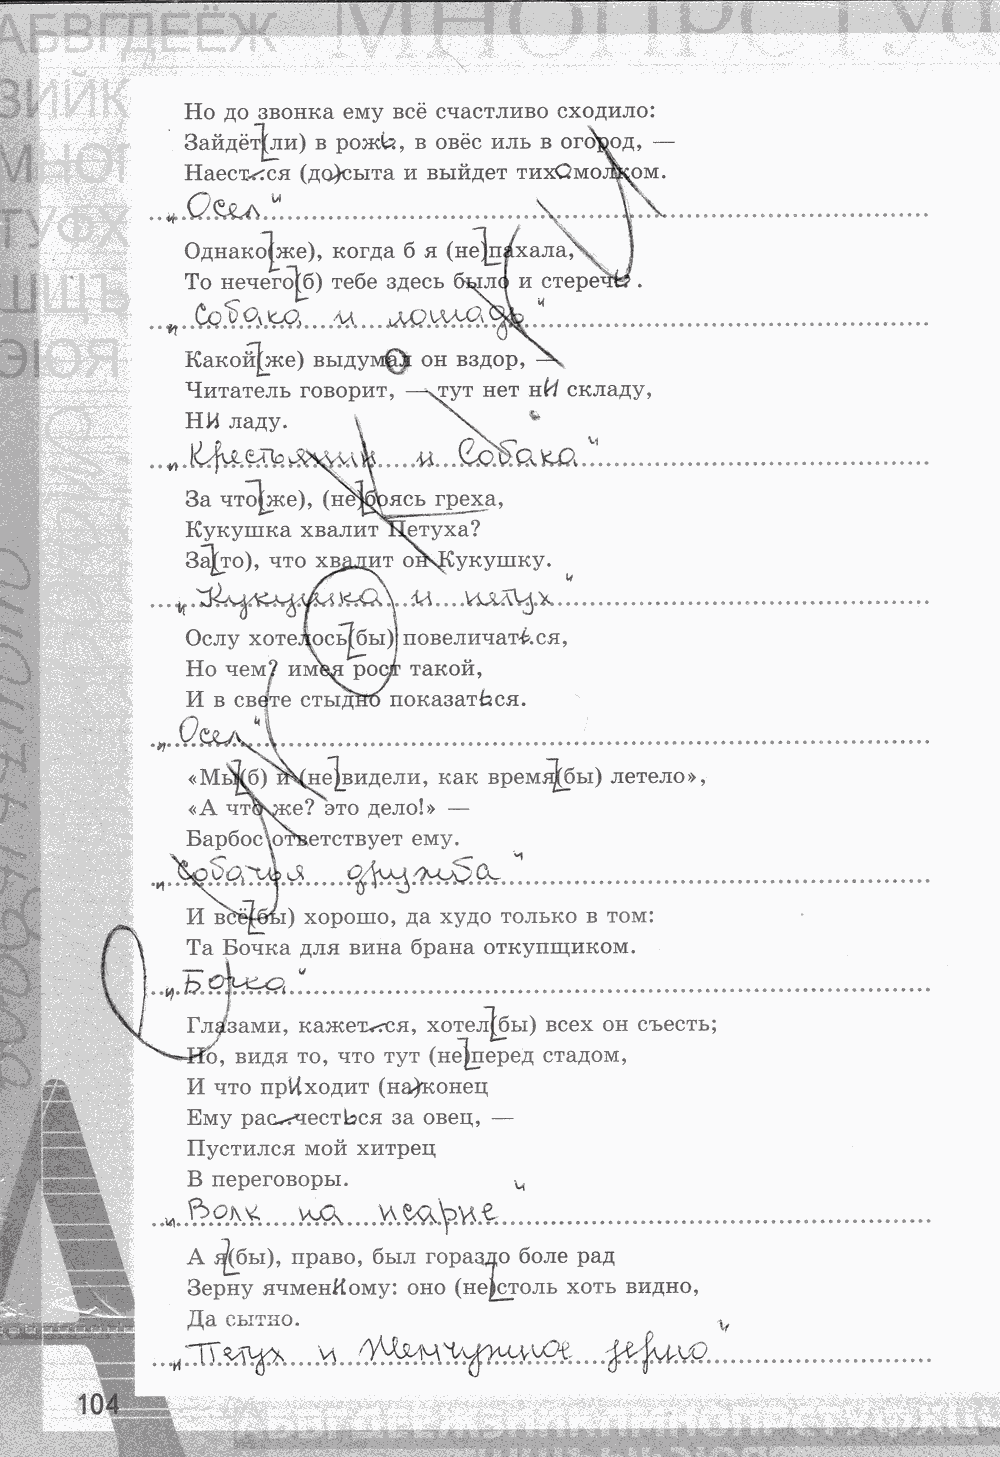 АБВГДЕЁЖ МНОПРСТУФ
ЗИЙК
МНОП
ТУФХ
ШЩЪ
ЭЮЯ
Но до звонка ему всё счастливо сходило:
Зайдёт(ли) в рожь.., в овёс иль в огород, —
Наест...ся (до)сыта и выйдет тихо..молком.
„Осел"
Однако(же), когда б я (не)пахала,
То нечего(б) тебе здесь было и стеречь.. .
„Собака и лошадь"
Какой(же) выдумал он вздор, —
Читатель говорит, — тут нет ни складу,
Ни ладу.
„Крестьянин и Собака"
За что(же), (не)боясь греха,
Кукушка хвалит Петуха?
За(то), что хвалит он Кукушку.
„Кукушка и петух"
Ослу хотелось(бы) повеличаться,
Но чем? имея рост такой,
И в свете стыдно показаться.
„Осел"
«Мы(б) и (не)видели, как время(бы) летело»,
«А что же? это дело!» —
Барбос ответствует ему.
„Собачья дружба"
И всё(бы) хорошо, да худо только в том:
Та Бочка для вина брана откупщиком.
„Бочка"
Глазами, кажет...ся, хотел(бы) всех он съесть;
Но, видя то, что тут (не)перед стадом,
И что приходит (на)конец
Ему рас...честься за овец, —
Пустился мой хитрец
В переговоры.
„Волк на псарне"
А я(бы), право, был гораздо боле рад
Зерну ячменному: оно (не)столь хоть видно,
Да сытно.
„Петух и Жемчужное зерно"
104